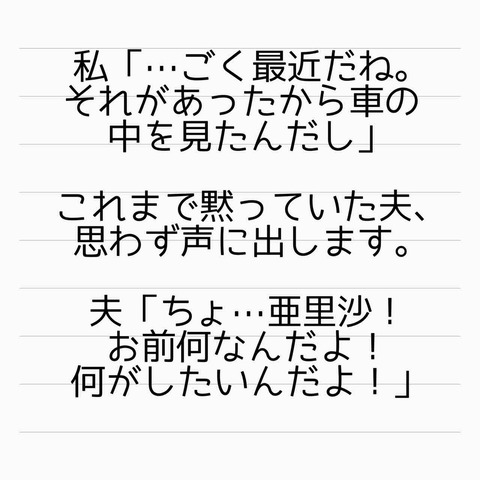 私「…ごく最近だね。
それがあったから車の
中を見たんだし」
これまで黙っていた夫、
思わず声に出します。
夫「ちょ…亜里沙！
お前何なんだよ！
何がしたいんだよ！」